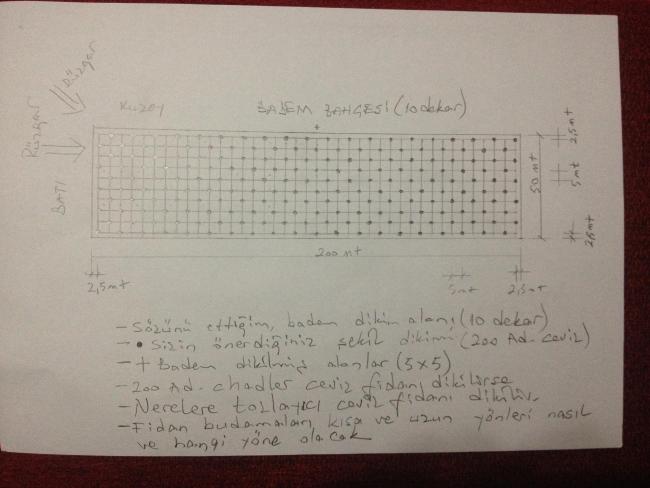 Rüzgar
Rüzgar
Kuzey
BADEM BAHÇESİ (10 dekar)
BATI
2,5mt
5mt
50 mt
2,5mt
200 mt
2,5mt
5mt
2,5mt
- Sözünü ettiğim, badem dikim alanı (10 dekar)
- • Sizin önerdiğiniz şekil dikimi (200 Ad. ceviz)
- + Badem dikilmiş alanlar (5x5)
- 200 Ad. chadler ceviz fidanı dikilirse
- Nerelere tozlayıcı ceviz fidanı dikilir.
- Fidan budamaları, kısa ve uzun yönleri nasıl
ve hangi yöne olacak